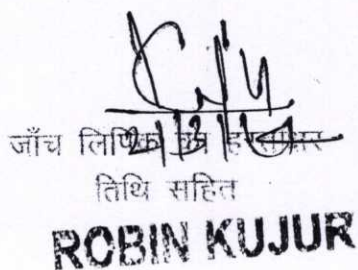 जाँच लिपिक का हस्ताक्षर
तिथि सहित
ROBIN KUJUR